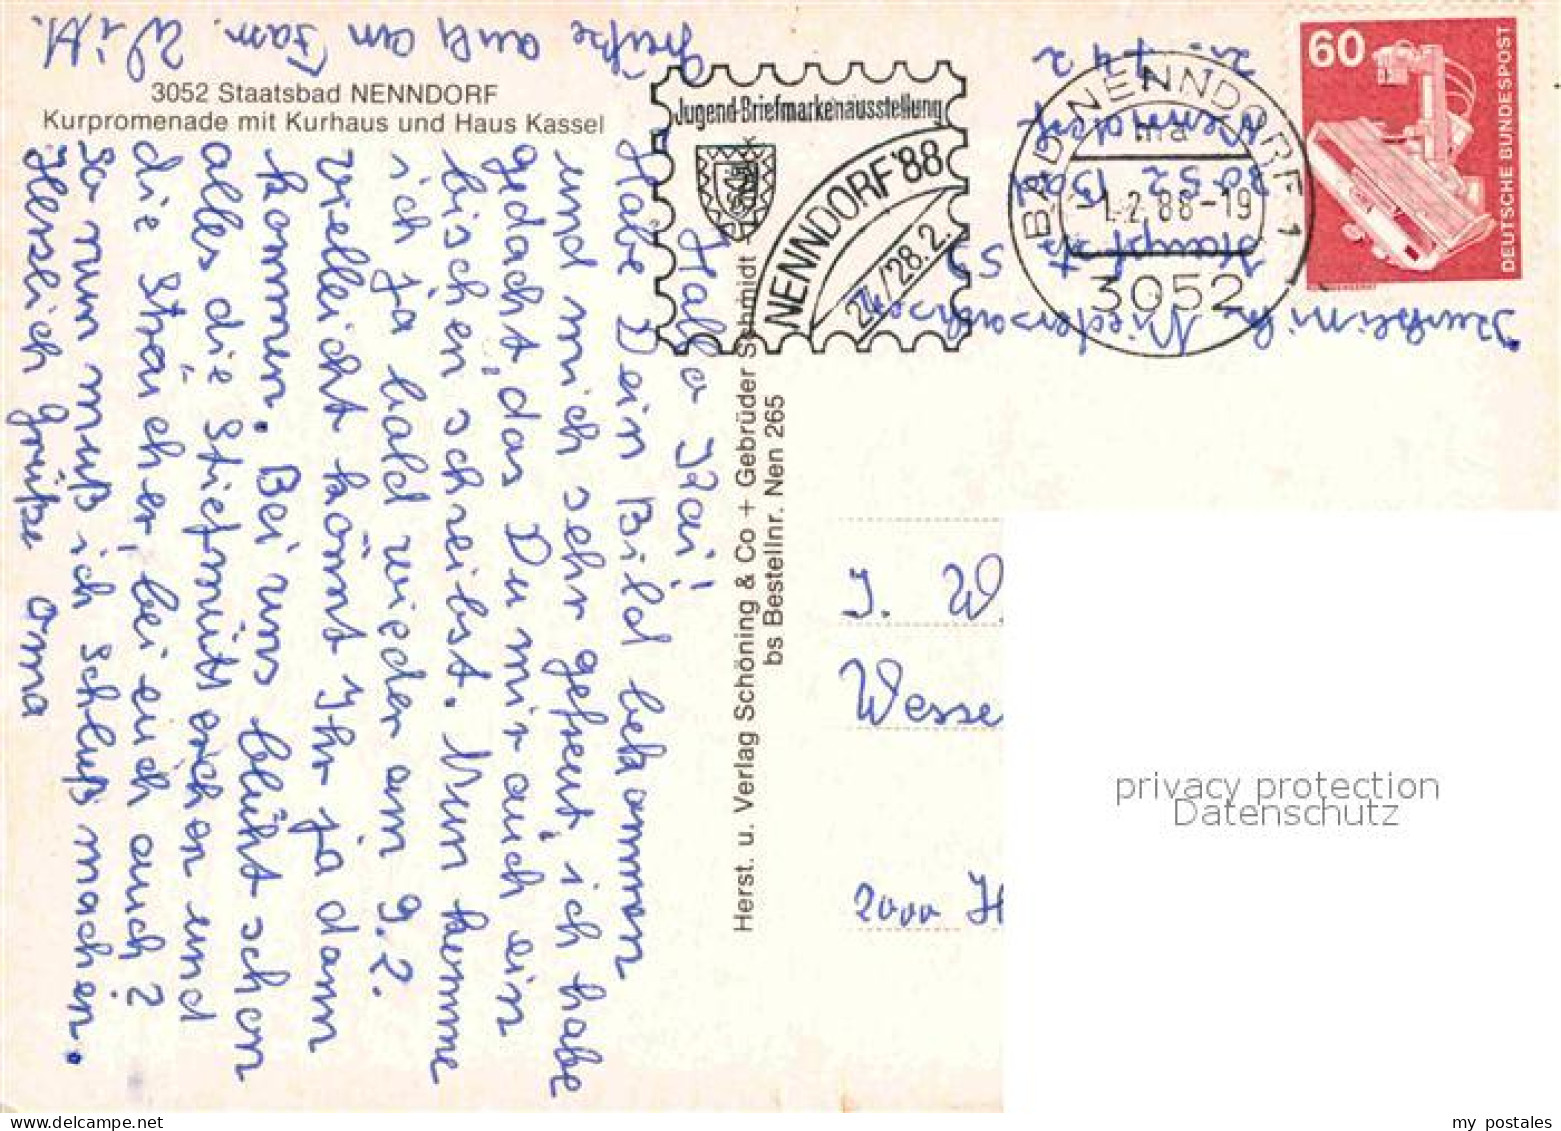 3052 Staatsbad NENNDORF
Kurpromenade mit Kurhaus und Haus Kassel
Hallo Kai!
Habe Dein Bild bekommen
und mich sehr gefreut, ich habe
gedacht, das Du mir auch ein
bischen schreibst. Nun komme
ich ja bald wieder am 9.2.
vielleicht könnt Ihr ja dann
kommen. Bei uns blüht schon
alles die Stiefmütterchen und
die Sträucher, bei euch auch?
So nun muß ich schluß machen.
Herzlich Grüße Oma
Grüße auch an Fam. Witt.
Herst. u. Verlag Schöning & Co + Gebrüder Schmidt
bs Bestellnr. Nen 265
Jugend-Briefmarkenausstellung
NENNDORF '88
27./28.2.
BAD NENNDORF 1
ma
-1.2.88-19
3052
60
DEUTSCHE BUNDESPOST
Kurklinik Niedersachsen
Hauptstr
3052 Bad
Nenndorf
Zi. 442
J. W.
Wesse
2000 H
privacy protection
Datenschutz
my postales